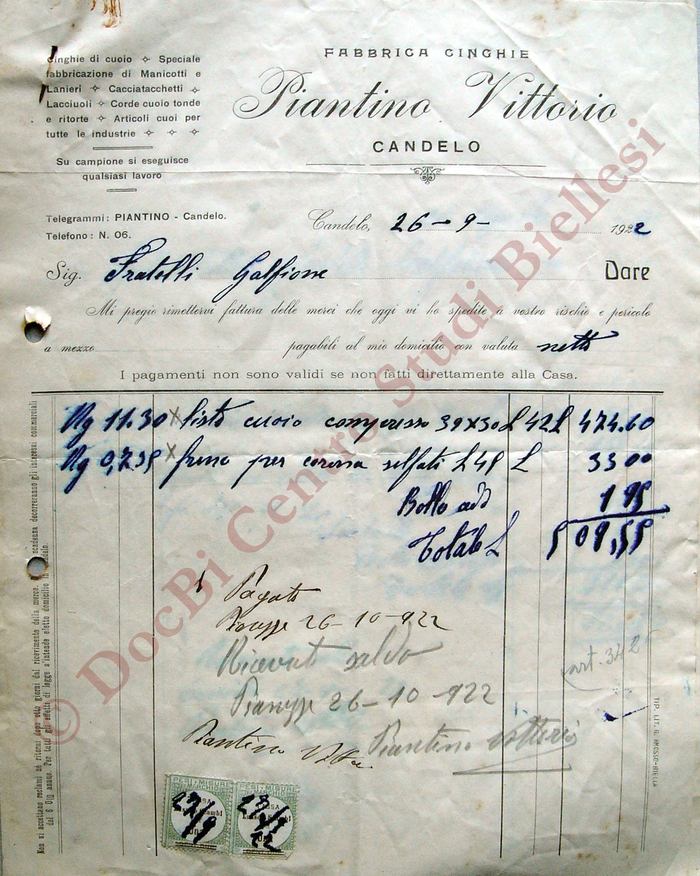 Cinghie di cuoio ✧ Speciale
fabbricazione di Manicotti e
Lanieri ✧ Cacciatacchetti ✧
Lacciuoli ✧ Corde cuoio tonde
e ritorte ✧ Articoli cuoi per
tutte le industrie ✧ ✧ ✧
Su campione si eseguisce
qualsiasi lavoro
FABBRICA CINGHIE
Piantino Vittorio
CANDELO
Telegrammi: PIANTINO - Candelo.
Telefono: N. 06.
Candelo, 26-9- 1922
Sig. Fratelli Galfione Dare
Mi pregio rimettervi fattura delle merci che oggi vi ho spedite a vostro rischio e pericolo
a mezzo pagabili al mio domicilio con valuta netto
I pagamenti non sono validi se non fatti direttamente alla Casa.
Kg 11.30 × listo cuoio compresso 39×30 L 42 L 474.60
Kg 0,735 × freno per corossa L 45 L 33 00
Bollo add 1 95
Totale L 509,55
Pagato
26-10-922
Ricevuto saldo
26-10-922
Piantino Vittorio
Piantino
art. 342
TIP. LIT. G. AMOSSO-BIELLA
Non si accettano reclami se ritorni dopo otto giorni dal ricevimento della merce.
scadenza decorreranno gli interessi commerciali
dal 6 0|0 annuo. Per tutti gli effetti di legge eletto domicilio in Candelo.
27/9
27/9
22
© DocBi Centro Studi Biellesi